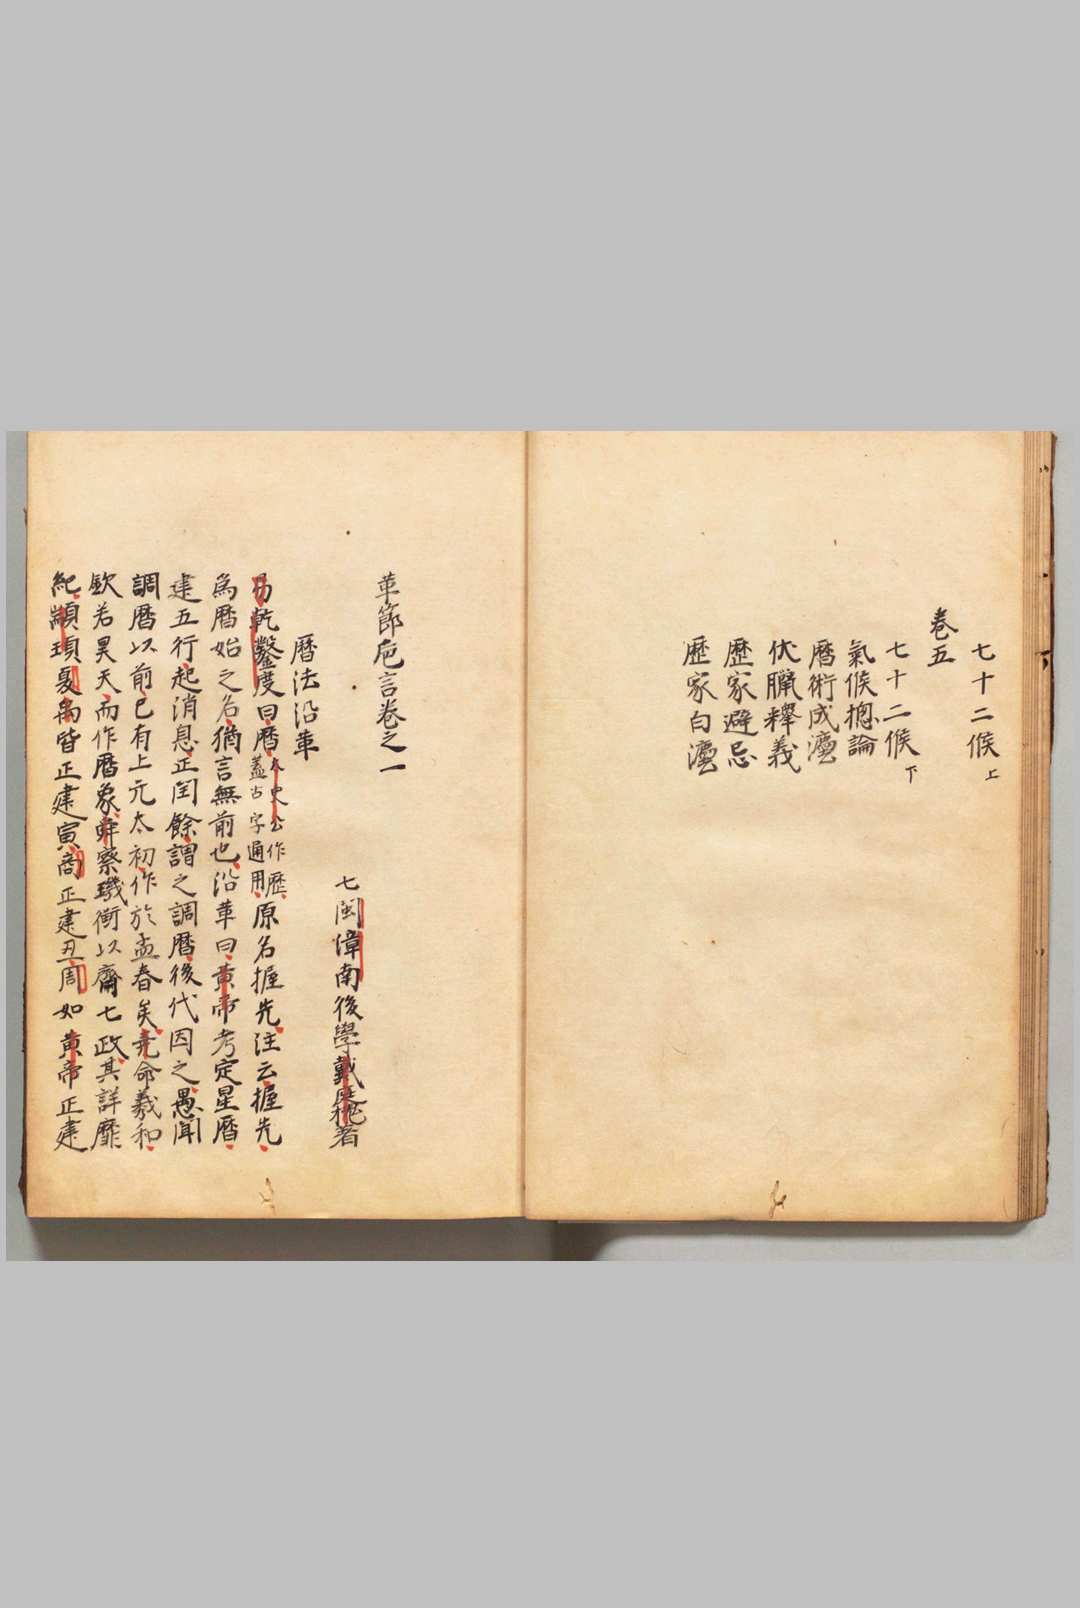 七十二候上
卷五
七十二候下
氣候揔論
曆術成灋
伏臘釋義
歷家避忌
歷家白灋
革節巵言卷之一
七閩漳南後學戴庭槐著
曆法沿革
易乾鑿度曰曆太史公作歷蓋古字通用原名握先注云握先
為曆始之名猶言無前也沿革曰黃帝考定星曆
建五行起消息正閏餘謂之調曆後代因之愚聞
調曆以前已有上元太初作於孟春矣堯命羲和
欽若昊天而作曆象舜察璣衡以齊七政其詳靡
紀顓頊夏禹皆正建寅商正建丑周如黃帝正建